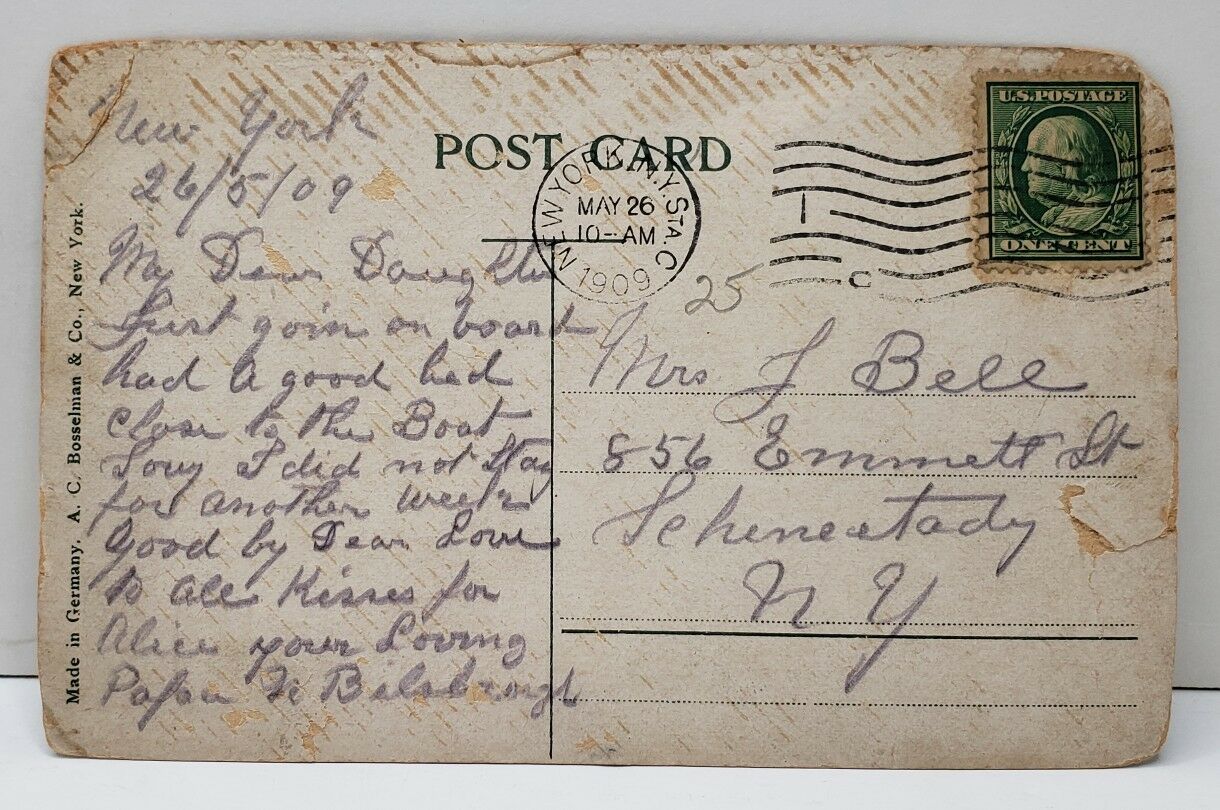 New York
26/5/09
My Dear Daughter
Just goin on board
had a good bed
close to the Boat
Sorry I did not Stay
for another week
Good by Dear Love
to all Kisses for
Alice your Loving
Papa
POST CARD
NEW YORK, N.Y. STA. C
MAY 26
10-AM
1909
1
C
U.S. POSTAGE
ONE CENT
25
Mrs J Bell
856 Emmett St
Schenectady
N Y
Made in Germany. A. C. Bosselman & Co., New York.